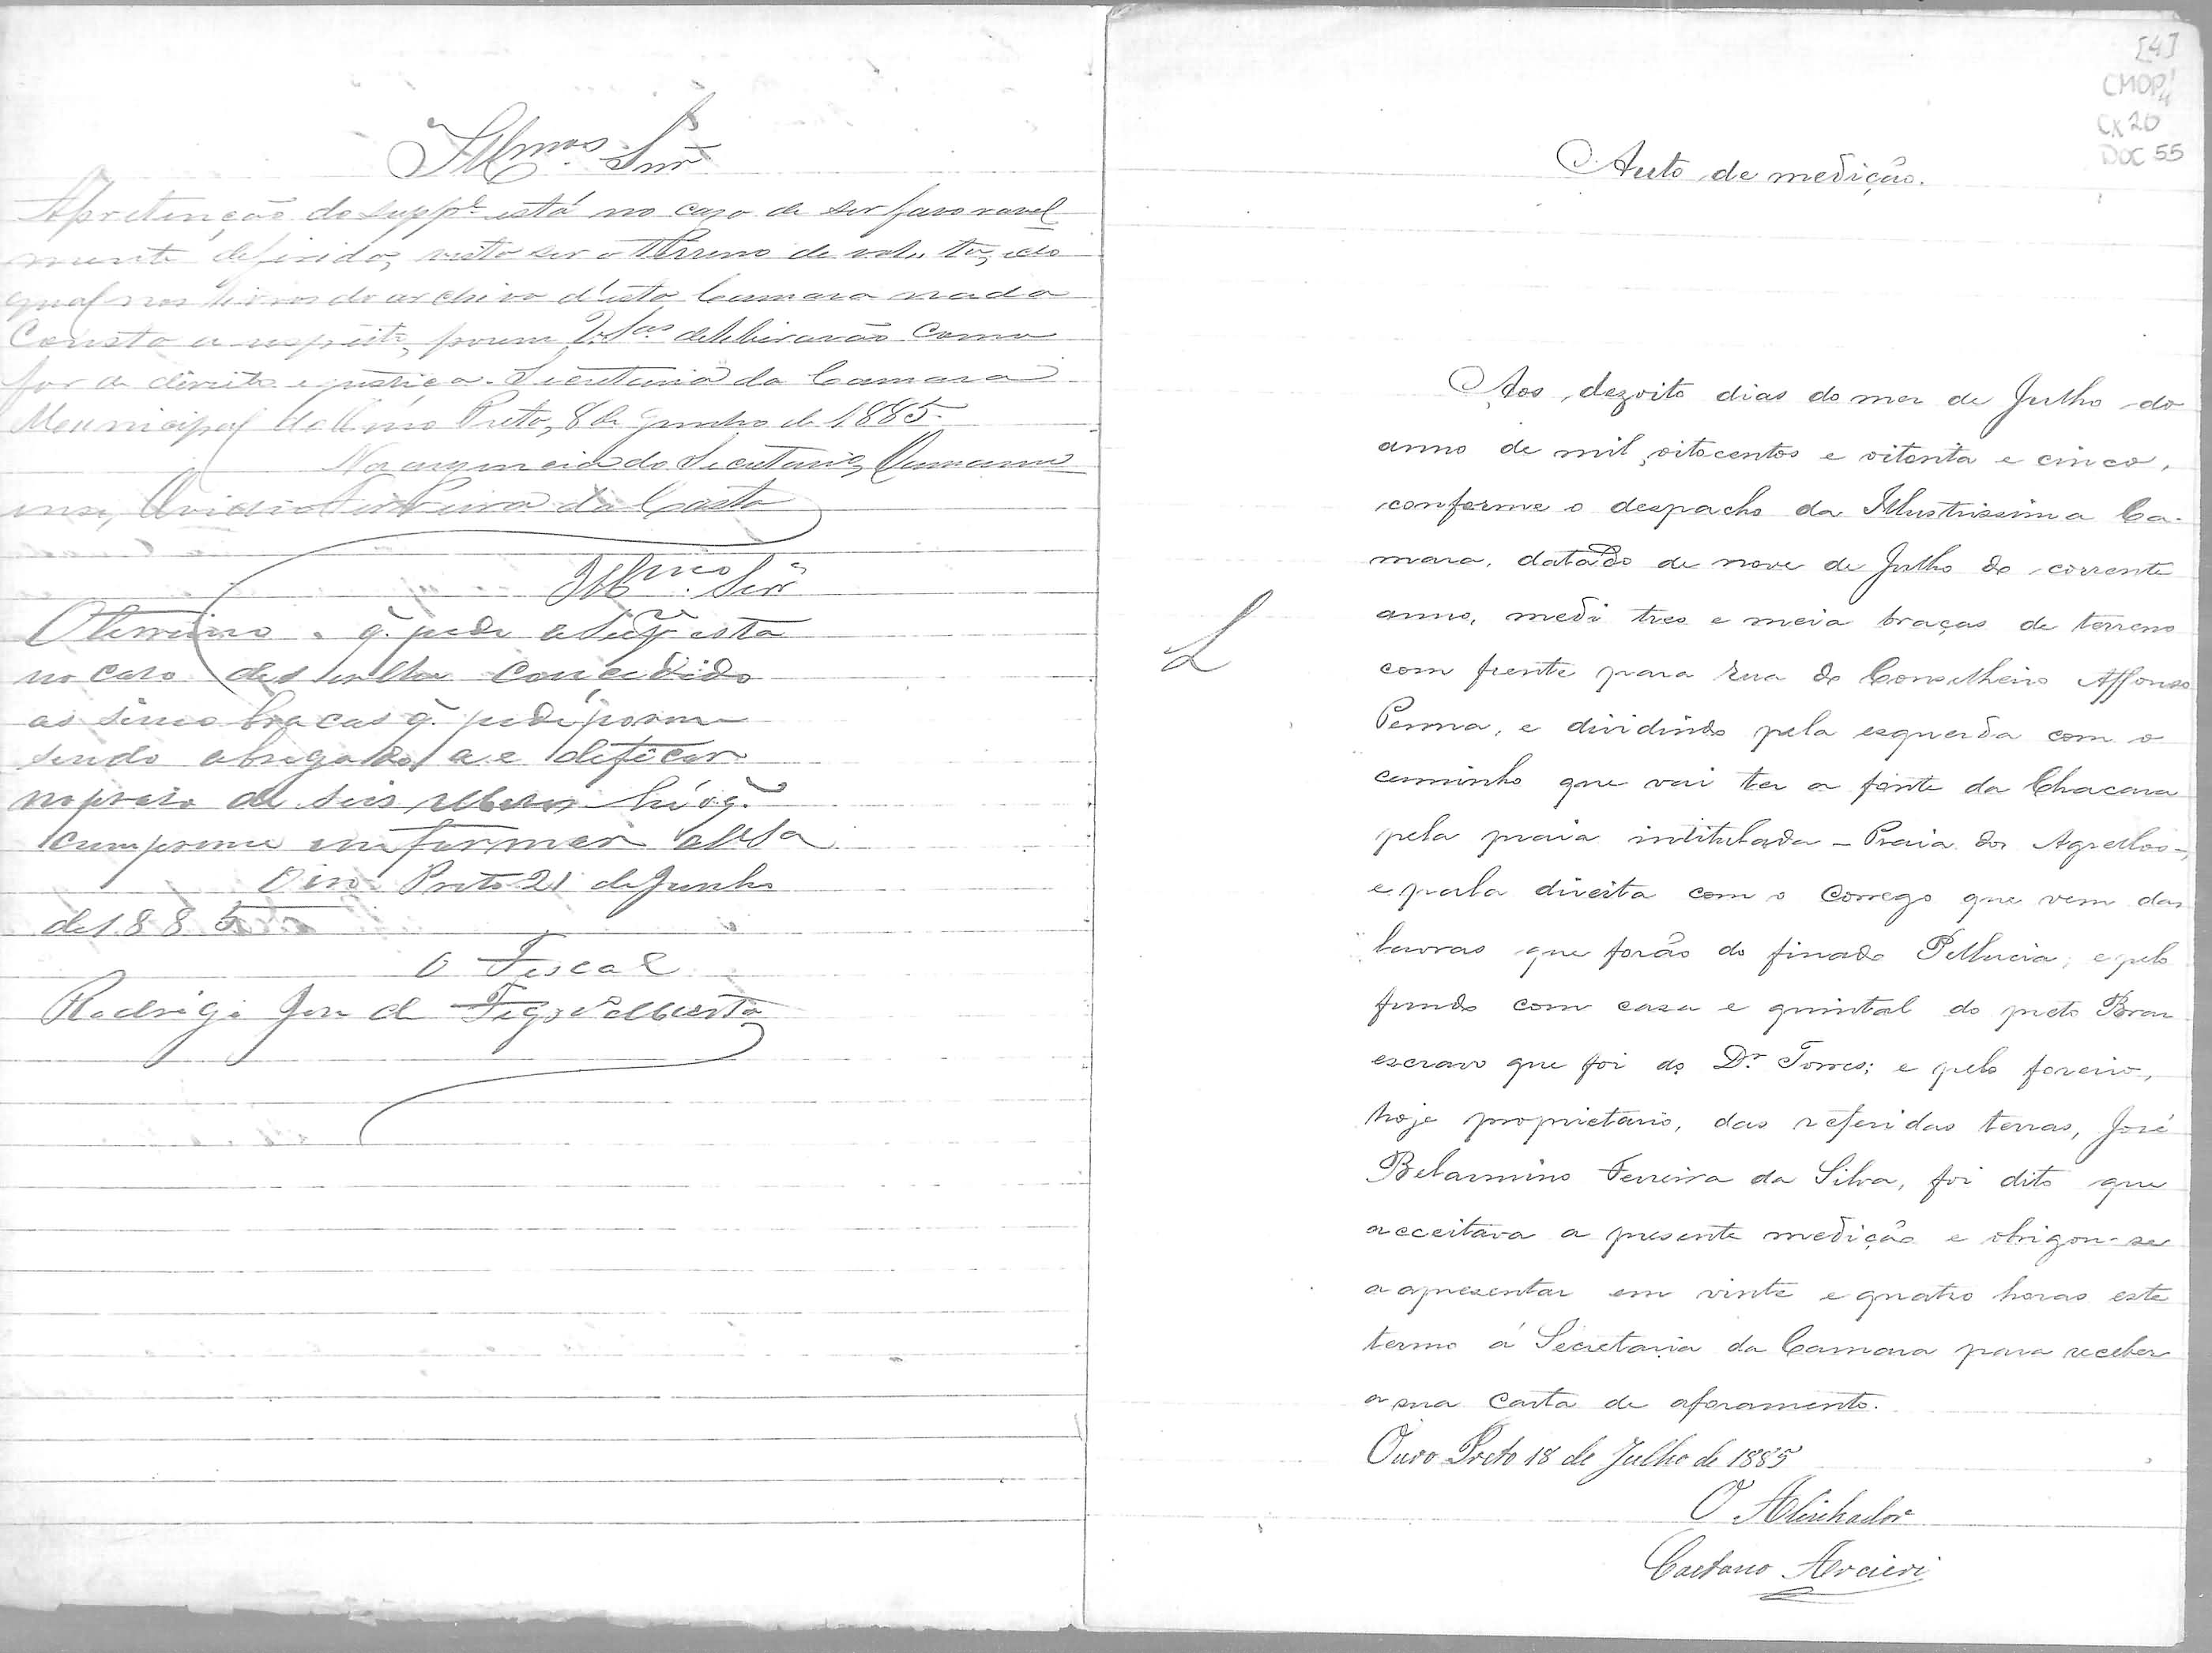 Illmos. Snrs
A pretenção do suppe está no caso de ser favoravel
mente deferida, visto ser o terreno devoluto, do
qual nos livros do archivo d'esta Camara nada
Consta a respeito, porem V. Sas. deliberarão como
for de direito e justiça. Secretaria da Camara
Municipal do Ouro Preto, 8 de Junho de 1885.
No do Secretario, O amanu
ense, Ovidio da Costa
Illmos. Snrs
O terreno q. pede está
no caso de concedido
as sinco bracas q. pede porem
sendo obrigado a e deficar
no praso de seis mezes hé o q.
cumpreme enformar a VSa
Ouro Preto 21 de Junho
de 1885
O Fiscal
Rodrigo José de Figdo
[4]
CMOP
CX 20
DOC 55
Auto de medição.
Aos dezoito dias do mez de Julho do
anno de mil oitocentos e oitenta e cinco,
conforme o despacho da Illustrissima Ca-
mara, datado de nove de Julho do corrente
anno, medi tres e meia braças de terreno
com frente para rua do Conselheiro Affonso
Penna, e dividindo pela esquerda com o
caminho que vai ter a fonte da Chacara
pela praia intitulada - Praia dos Agrellos -,
e pela direita com o Corrego que vem das
lavras que forão do finado Pellucia; e pelo
fundo com casa e quintal do preto Braz
escravo que foi do Dr. Torres; e pelo foreiro,
hoje proprietario, das referidas terras, José
Belarmino Ferreira da Silva, foi dito que
acceitava a presente medição e obrigou-se
a apresentar em vinte e quatro horas este
termo á Secretaria da Camara para receber
a sua Carta de aforamento.
Ouro Preto 18 de Julho de 1885
O Alinhador
Caetano Arcieri